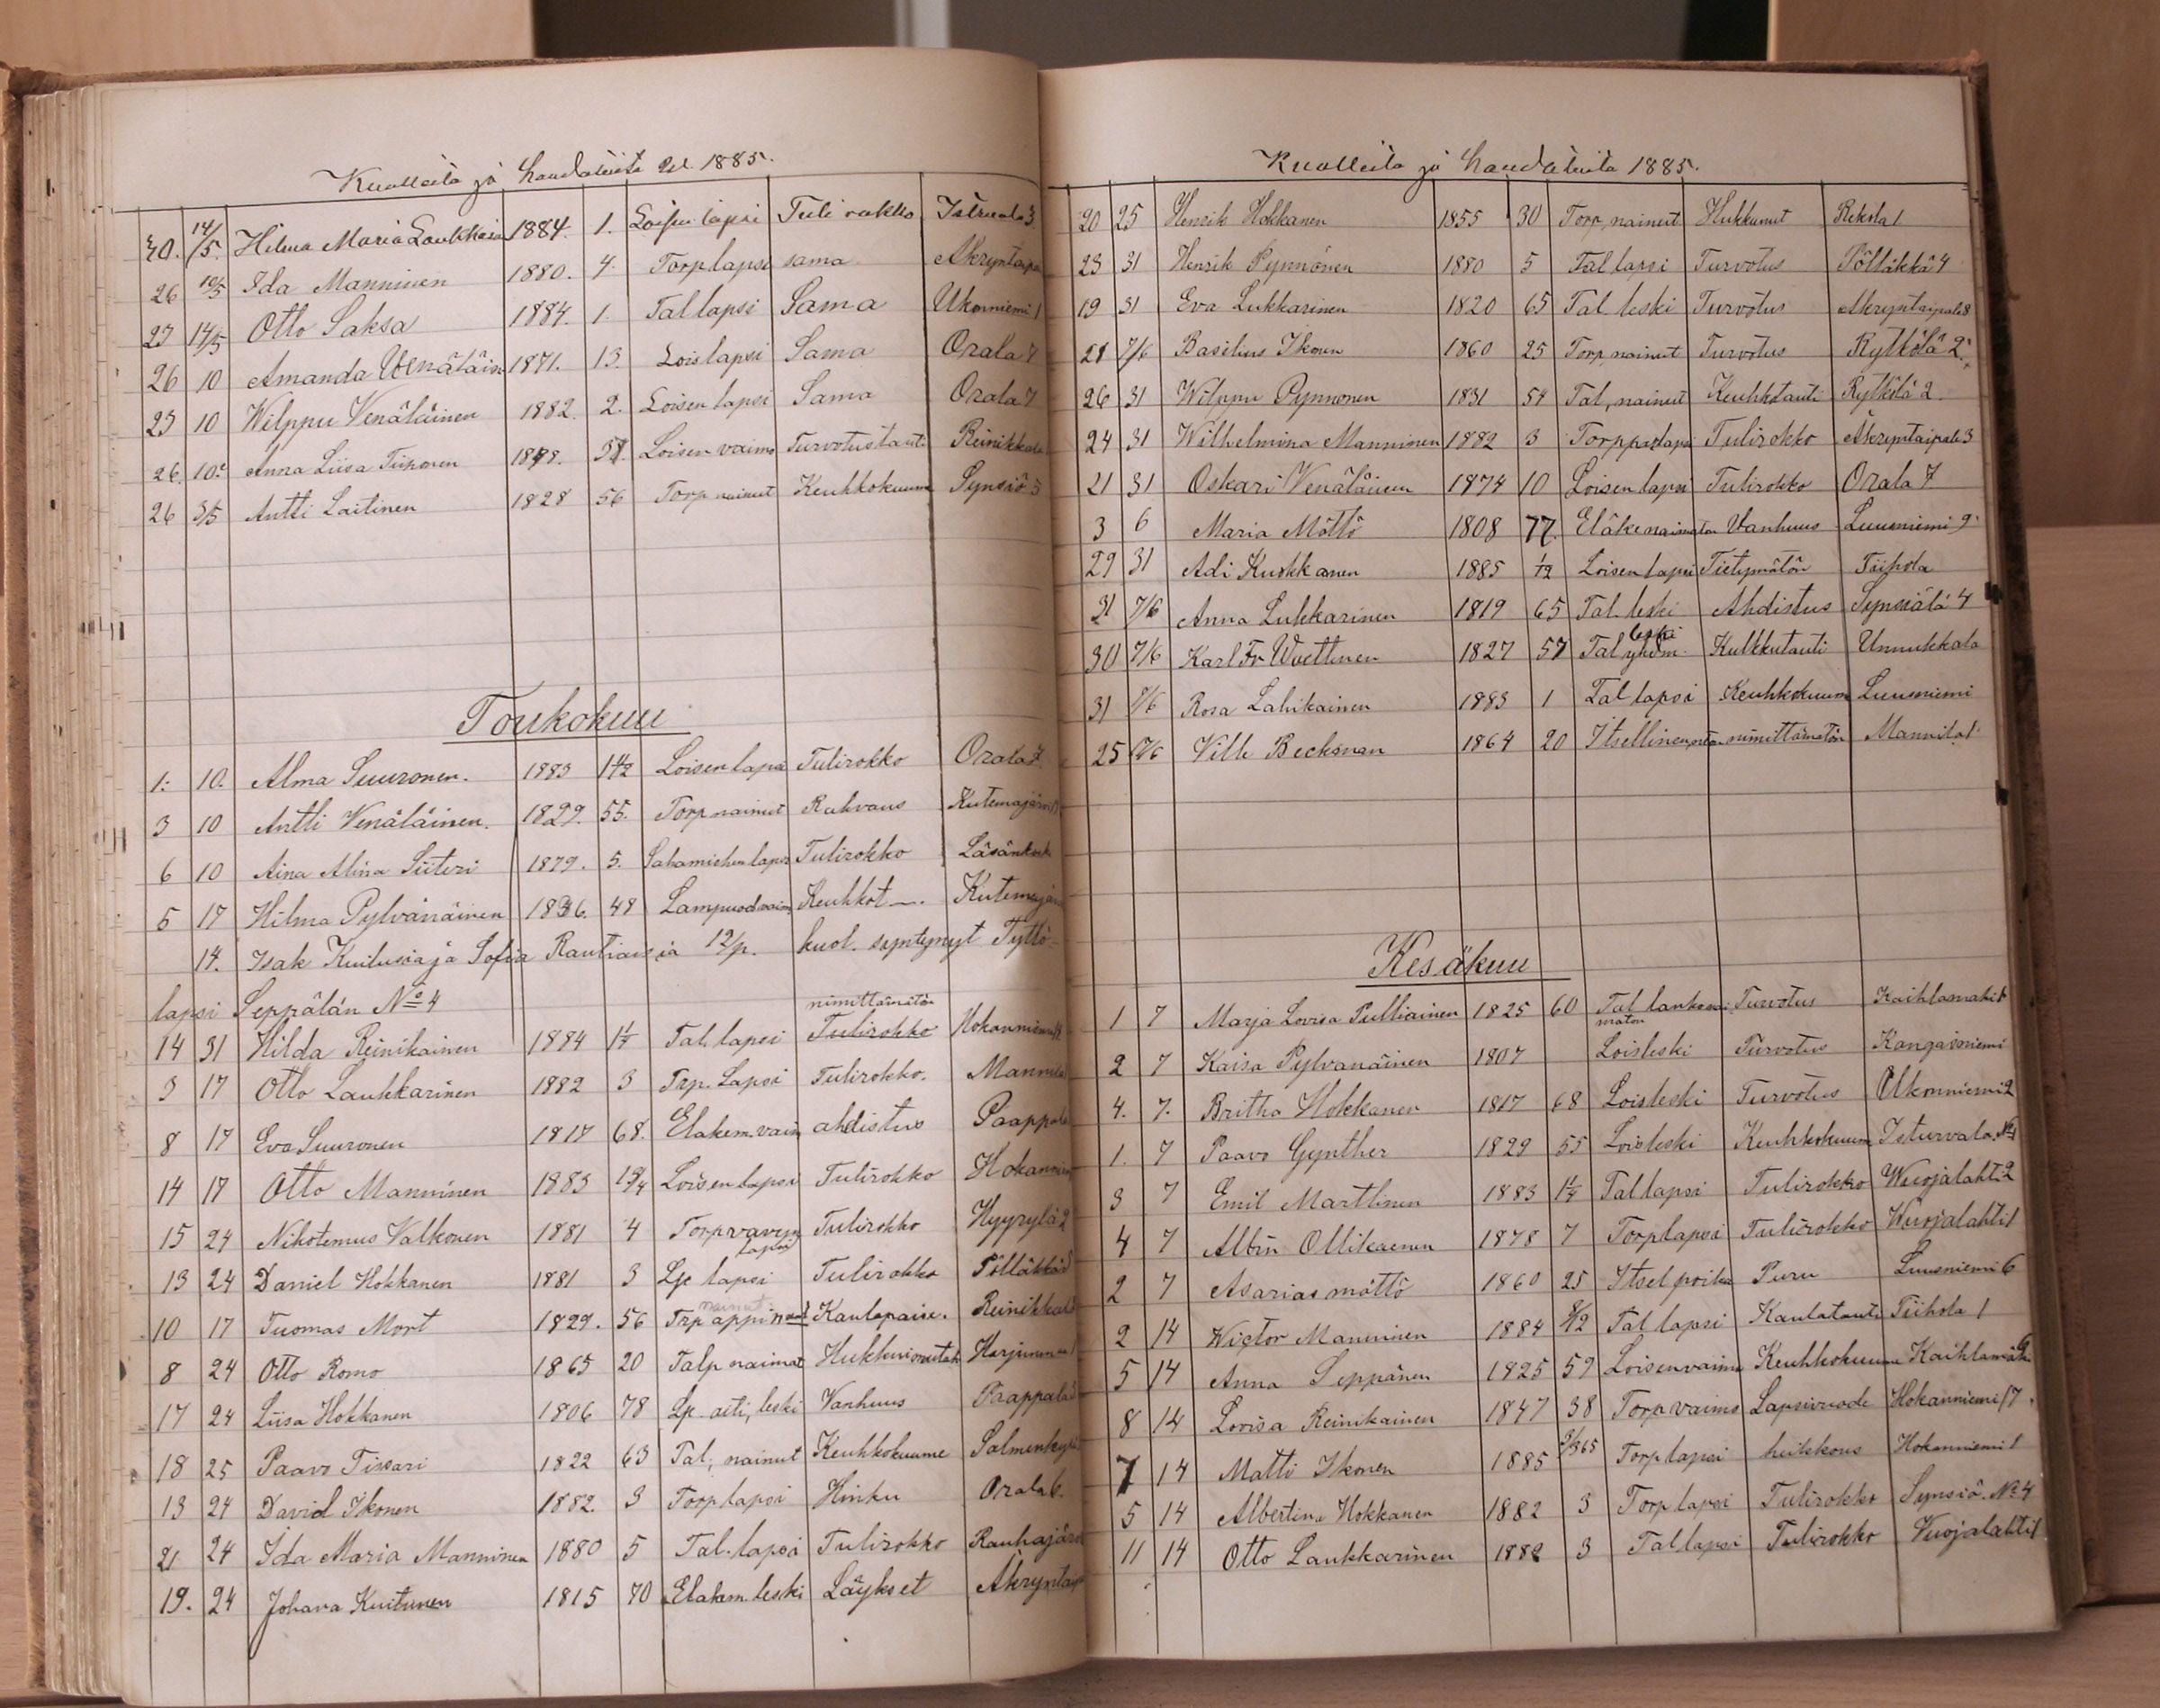 Kuolleita ja haudatuista 1885.
30. 14/5. Hilma Maria Laukkari 1884. 1. Loisen lapsi Tuli rokko 3
26 10/5 Ida Manninen 1880. 4. Torp lapsi sama
27 14/5 Otto Saksa 1884. 1. Tal lapsi Sama Ukonniemi 1
26 10 Amanda Venäläin 1871. 13. Lois lapsi Sama Orala 7
23 10 Wilppu Venäläinen 1882. 2. Loisen lapsi Sama Orala 7
26 10. Anna Liisa Loisen vaimo Turvotustauti Reinikkala
26 3/5 Antti Laitinen 1828 56 Torp nainut Keuhkokuume Synsiö 3
Toukokuu
1. 10. Alma Suuronen. 1883 1 1/2 Loisen lapsi Tulirokko Orala 7
3 10 Antti Venäläinen. 1829. 55. Torp nainut Kutemajärvi
6 10 Aina Alina Siiteri 1879. 5. Sahamiehen lapsi Tulirokko
5 17 Hilma Pylvänäinen 1836. 48 Lampuod vaimo Keuhkot—. Kutemajär
14. Isak ja Sofia kuol. syntynyt Tyttö
lapsi Seppälän No 4
14 31 Hilda Reinikainen 1884 1 1/4 Tal. lapsi nimittämätön Tulirokko Hokanniemi
3 17 Otto Laukkarinen 1882 3 Trp. Lapsi Tulirokko. Mannila
8 17 Eva Suuronen 1817 68. Eläkem. vaim ahdistus Paappala
14 17 Otto Manninen 1883 1 3/4 Loisen lapsi Tulirokko Hokanniem
15 24 Nikotemus Valkonen 1881 4 Torp vävyn lapsi Tulirokko Hyyrylä 2
13 24 Daniel Hokkanen 1881 3 Lp lapsi Tulirokko Pölläkkä
10 17 Tuomas Mort 1829. 56 Trp appi nainut Kaulapaise. Reinikkala
8 24 Otto Romo 1865 20 Talp naimat Harjunmaa 1
17 24 Liisa Hokkanen 1806 78 Lp. äiti, leski Vanhuus Paappala
18 25 Paavo Tissari 1822 63 Tal, nainut Keuhkokuume Salmenkylä
13 24 David Ikonen 1882. 3 Torp lapsi Hinku Orala 6.
21 24 Ida Maria Manninen 1880 5 Tal. lapsi Tulirokko Rauhajärvi
19. 24 Johana Kuitunen 1815 70 Eläkem. leski Läykset
Kuolleita ja haudatuita 1885.
20 25 Henrik Hokkanen 1855 30 Torp, nainut Hukkunut Rekola 1
23 31 Henrik Pynnönen 1880 5 Tal lapsi Turvotus Pölläkkä 4
19 31 Eva Lukkarinen 1820 65 Tal leski Turvotus Äkryntaipale 8
28 7/6 Basilius Ikonen 1860 25 Torp nainut Turvotus Rytkölä 2.
26 31 Wilppu Pynnonen 1831 54 Tal, nainut Keuhkotauti Rytkölä 2
24 31 Wilhelmina Manninen 1882 3 Torpparlapsi Tulirokko Äkryntaipale 3
21 31 Oskari Venäläinen 1874 10 Loisen lapsi Tulirokko Orala 7
3 6 Maria Möttö 1808 77. Eläke naimaton Vanhuus Luusniemi 9
29 31 Adi Kuokkanen 1885 1/12 Loisen lapsi Tietymätön Toihola
31 7/6 Anna Lukkarinen 1819 65 Tal. leski Ahdistus Synsiälä 4
30 7/6 Karl Fr Wuettinen 1827 57 Tal leski Kulkkutauti Unnukkala
31 7/6 Rosa Lahikainen 1883 1 Tal lapsi Keuhkokuum Luusniemi
25 7/6 Ville Beckman 1864 20 Itsellinen nimittämätön Mannila 1.
Kesäkuu
1 7 Marja Lovisa Pulliainen 1825 60 Tal naimaton Turvotus
2 7 Kaisa Pylvanäinen 1807 Loisleski Turvotus Kangasniemi
4. 7. Britha Hokkanen 1817 68 Loisleski Turvotus Ukonniemi 2
1. 7 Paavo Gynther 1829 55 Loisleski Keuhkokuume Istuvala. No 1
3 7 Emil Marttinen 1883 1 1/4 Tal lapsi Tulirokko Wuojalahti 2
4 7 Albin Ollikaenen 1878 7 Torp lapsi Tulirokko Wuojalahti 1
2 7 Asarias möttö 1860 25 Itsel poika Puru Luusniemi 6
2 14 Wictor Manninen 1884 8/12 Tal lapsi Kaulatauti Toihola 1
5 14 Anna Seppänen 1825 59 Loisen vaimo Keuhkokuume
8 14 Lovisa Reinikainen 1847 38 Torp vaimo Lapsivuode Hokanniemi 17
7 14 Matti Ikonen 1885 3/365 Torp lapsi heikkous Hokanniemi 1
5 14 Albertina Hokkanen 1882 3 Torp lapsi Tulirokko Synsiö. No 4
11 14 Otto Laukkarinen 1882 3 Tal lapsi Tulirokko Vuojalahti 1